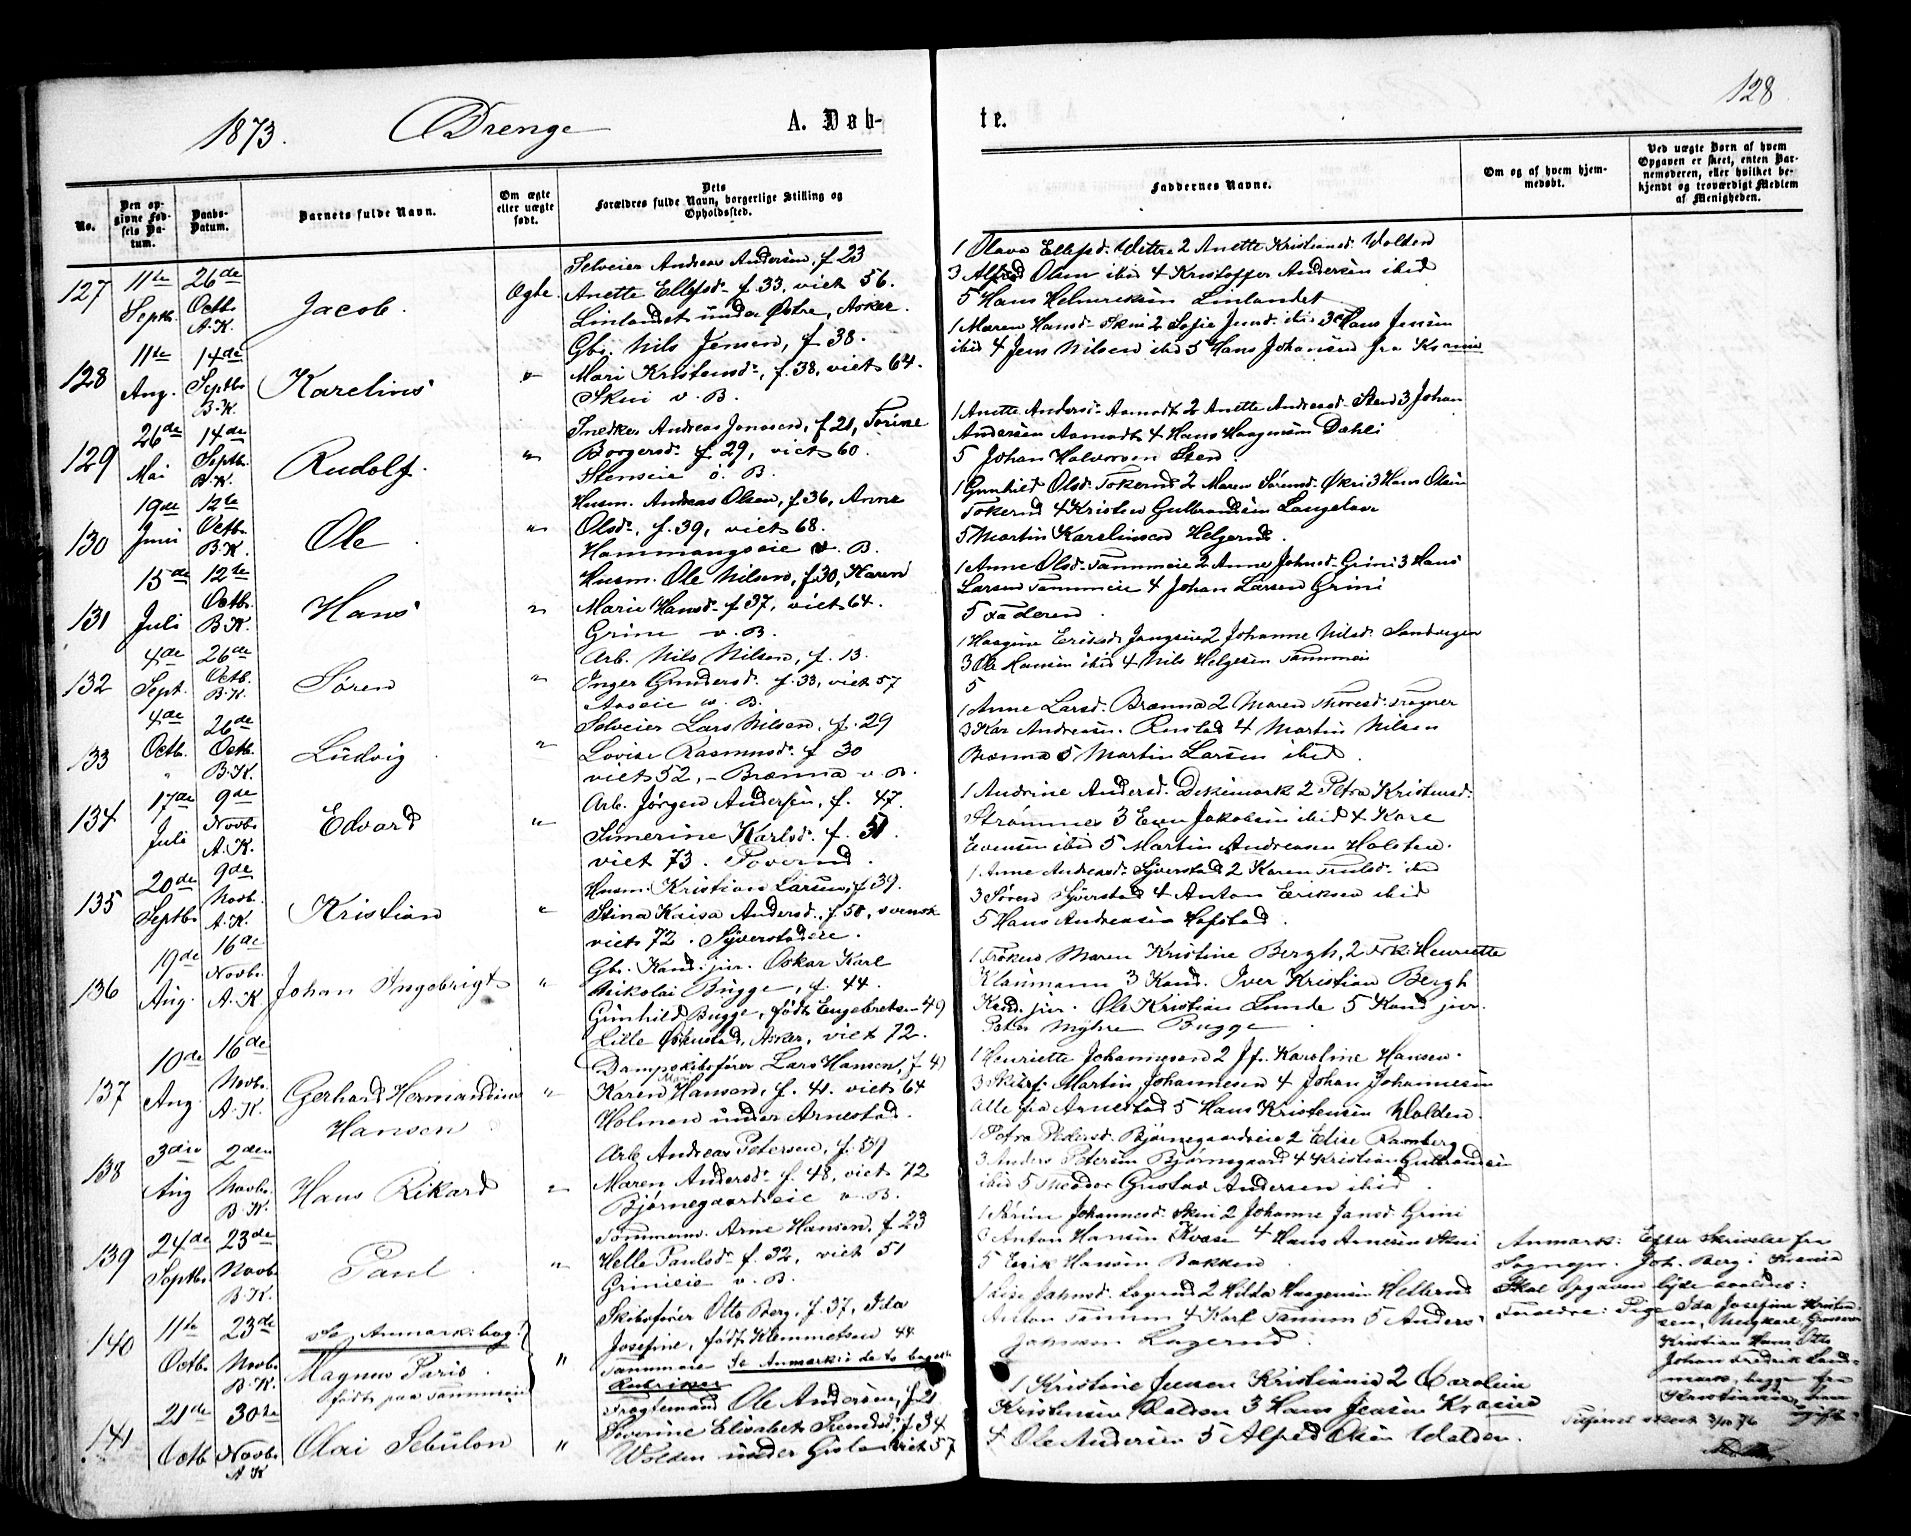 128
1873. Drenge A. Døb- te.
No.
Den op-
givne Fød-
sels Da-
tum.
Daabs-
Datum.
Barnets fulde Navn.
Om ægte
eller uægte
født.
Dets
Forældres fulde Navn, borgerlige Stilling og
Opholdssted.
Faddernes Navne.
Om og af hvem hjem-
medøbt.
Ved uægte Børn af hvem
Opgaven er skeet, enten Bar-
nemoderen, eller hvilket be-
kjendt og troværdigt Medlem
af Menigheden.
127
11te
Septb.
26de
Octb.
A.K.
Jacob.
Ægte.
Selveier Andreas Andersen, f. 23
Anette Ellefsd. f. 33, viet 56.
Linlandet under Østre, Asker.
1 Olava Ellefsd. Wettre 2 Anette Kristiansd. Wolden
3 Alfred Olsen ibid 4 Kristoffer Andersen ibid
5 Hans Helmeriksen Linlandet
128
11te
Aug.
14de
Septb.
B.K.
Karelius
"
Gbr. Nils Jensen, f. 38.
Mari Kristensd., f. 38, viet 64.
Skui v. B.
1 Maren Hansd. Skui 2 Sofie Jensd. ibid 3 Hans Jensen
ibid 4 Jens Nilsen ibid 5 Hans Johansen fra Krania
129
26de
Mai
14de
Septb.
B.K.
Rudolf.
"
Snedker Andreas Jonasen, f. 21, Torine
Borgersd. f. 29, viet 60.
Stenseie ö. B.
1 Anette Andersd. Aamodt 2 Anette Andreasd. Sten 3 Johan
Andersen Aamodt 4 Hans Haagensen Dahli
5 Johan Halvorsen Sten.
130
19de
Juni
12te
Octb.
B.K.
Ole
"
Husm. Andreas Olsen, f. 36, Anne
Olsd., f. 39, viet 68.
Hammangseie v. B.
1 Gunhild Olsd. Tokerud 2 Maren Sørensd. Økri 3 Hans Olsen
Tokerud 4 Kristen Gulbrandsen
5 Martin Karelinsen Helgerud.
131
15de
Juli
12te
Octb.
B.K.
Hans
"
Husm. Ole Nilsen, f. 30, Karen
Marie Hansd. f. 37, viet 64.
Grini v. B.
1 Anne Olsd. Tanumeie 2 Anne Johnsd. Grini 3 Hans
Larsen Tanumeie 4 Johan Larsen Grini
5 Faderen.
132
4de
Sept.
26de
Octb.
B.K.
Søren
"
Arb. Nils Nilsen, f. 13.
Inger Gundersd. f. 33, viet 57
Aaseie v. B.
1 Haagine Eriksd. 2 Johanne Nilsd. Sandvigen
3 Ole Hansen ibid 4 Nils Helgesen Tanumeie
5
133
4de
Octb.
"
26de
Octb.
B.K.
Ludvig
"
Selveier Lars Nilsen, f. 29
Lovise Rasmusd. f. 30
viet 52, - Brænna v. B.
1 Anne Larsd. Brænna 2 Maren Thoresd.
3 Kar Andreasen. Rustad 4 Martin Nilsen
Brænna 5 Martin Larsen ibid.
134
17de
Juli
9de
Novb.
A.K.
Edvard
"
Arb. Jørgen Andersen, f. 47.
Simerine Karlsd. f. 51.
viet 73. Toverud.
1 Andrine Andersd. Dikemark 2 Petra Kristensd.
Strømmen 3 Even Jakobsen ibid 4 Kare
Evensen ibid 5 Martin Andreasen Holsten.
135
20de
Septb.
9de
Novb.
A.K.
Kristian
"
Husm. Kristian Larsen, f. 39.
Stina Kaisa Andersd., f. 50, svensk
viet 72. Syverstadeie.
1 Anne Andreasd. Syverstad 2 Karen Truelsd. ibid
3 Søren Syverstad 4 Anton Eriksen ibid
5 Hans Andreasen Hofstad.
136
19de
Aug.
16de
Novb.
A.K.
Johan Ingebrigt
"
Gbr. Kand. jur. Oskar Karl
Nikolai Bugge, f. 44.
Gunhild Bugge, født Engebretsen 49
Lille Oskestad, Asker, viet 72.
1 Frøken Maren Kristine Bergh, 2 Frk. Henriette
Klaumann 3 Kand. Iver Kristian Bergh
Kand. jur. Ole Kristian Lunde 5 Kand. jur.
Peter Myhre Bugge.
137
10de
Aug.
16de
Novb.
A.K.
Gerhard Hermandius
Hansen
"
Dampskibsfører Lars Hansen, f 41
Karen Marie Hansen, f. 41. viet 64
Holmen under Arnestad.
1 Henriette Johannesen 2 Jfr. Karoline Hansen.
3 Skibsf. Martin Johannesen 4 Johan Johannesen
alle fra Arnestad 5 Hans Kristensen Wolden.
138
3die
Aug
2den
Novb.
B.K.
Hans Rikard
"
Arb. Andreas Petersen, f. 39
Maren Andersd. f. 48, viet 72
Bjørnegaardseie v. B.
1 Petra Pedersd. Bjørnegaardseie 2 Elise Ramberg
3 Anders Petersen Bjørnegaard 4 Kristian Gulbrandsen
ibid 5 Theodor Gustav Andersen ibid.
139
24de
Septb.
23de
Novb.
B.K.
Paul
"
Tømmerm. Arne Hansen, f. 23
Helle Paulsd. f. 32, viet 51
Grinieie v. B.
1 Søren Johannesd. Skui 2 Johanne Jansd. Grini
3 Anton Hansen Kvase 4 Hans Arnesen Skui
5 Erik Hansen Bakken.
140
11te
Octb.
23de
Novb.
B.K.
se Anmærk: bag!
Magnus Paris.
født paa Tanumeie
"
Skibsfører Otto Berg, f. 37, Ida
Josefine, født Klemmetsen 44
Tanumeie Se Anmærkn: de to bageste
Rubriker
1 Lise Johnsd. Lagerud 2 Hilda Haagensen Hellerud
Anton Tanum 4 Karl Tanum 5 Anders
Johnsen Lagerud.
Anmærk: Efter Skrivelse fra
Sognepr. Joh. Berg i Krania
skal Opgaven lyde saaledes:
Forældre: Pige Ida Josefine Kristen-
sen, Ungkarl, Grosserer
Kristian Hans Otto
Johan Fredrik Land-
mark, begge fra
Kristiania,
Tilførsel skeet 3/10 76
141
21de
Octb.
30te
Novb.
A.K
Olai Sebulon
"
Fragtemand Ole Andersen, f. 21
Severine Elisabet f. 34
Wolden under Gisle viet 57
1 Kristine Jensen Kristiania 2 Caroline
Kristensen Wolden 3 Hans Jensen Krania
4 Ole Andersen 5 Alfred Olsen Wolden.